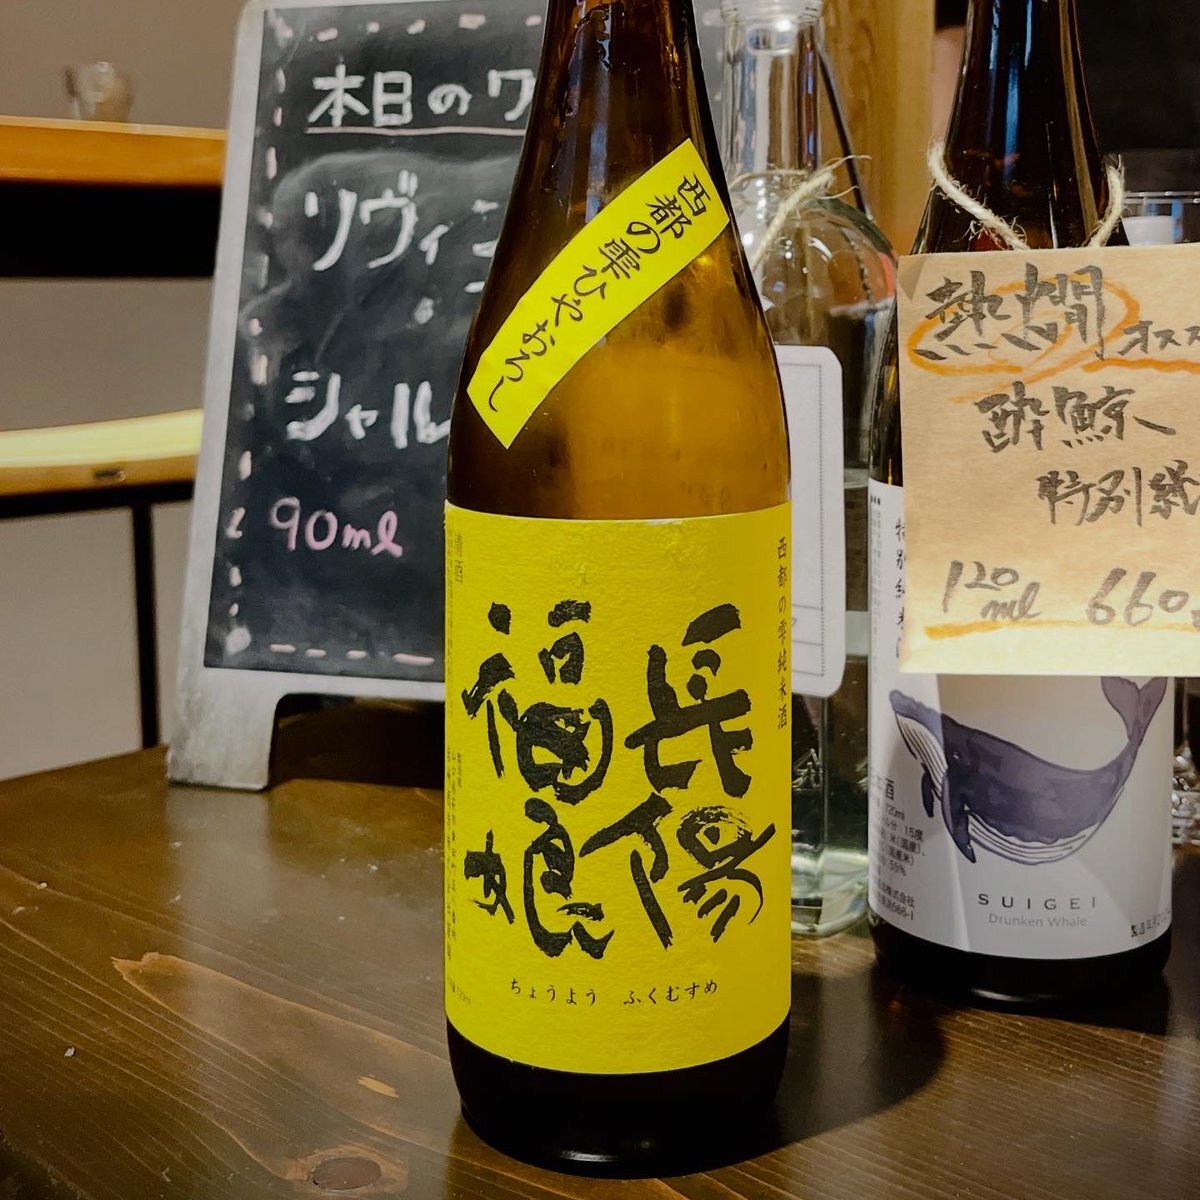 本日のワ
リヴィ
シャル
90ml
西都の雫ひやおろし
清酒
西都の雫純米酒
長陽
福娘
ちょうよう ふくむすめ
熱燗オスス
酔鯨
特別純
120ml 660
特別純米
720ml
15度
米(国産)、
SUIGEI
Drunken Whale